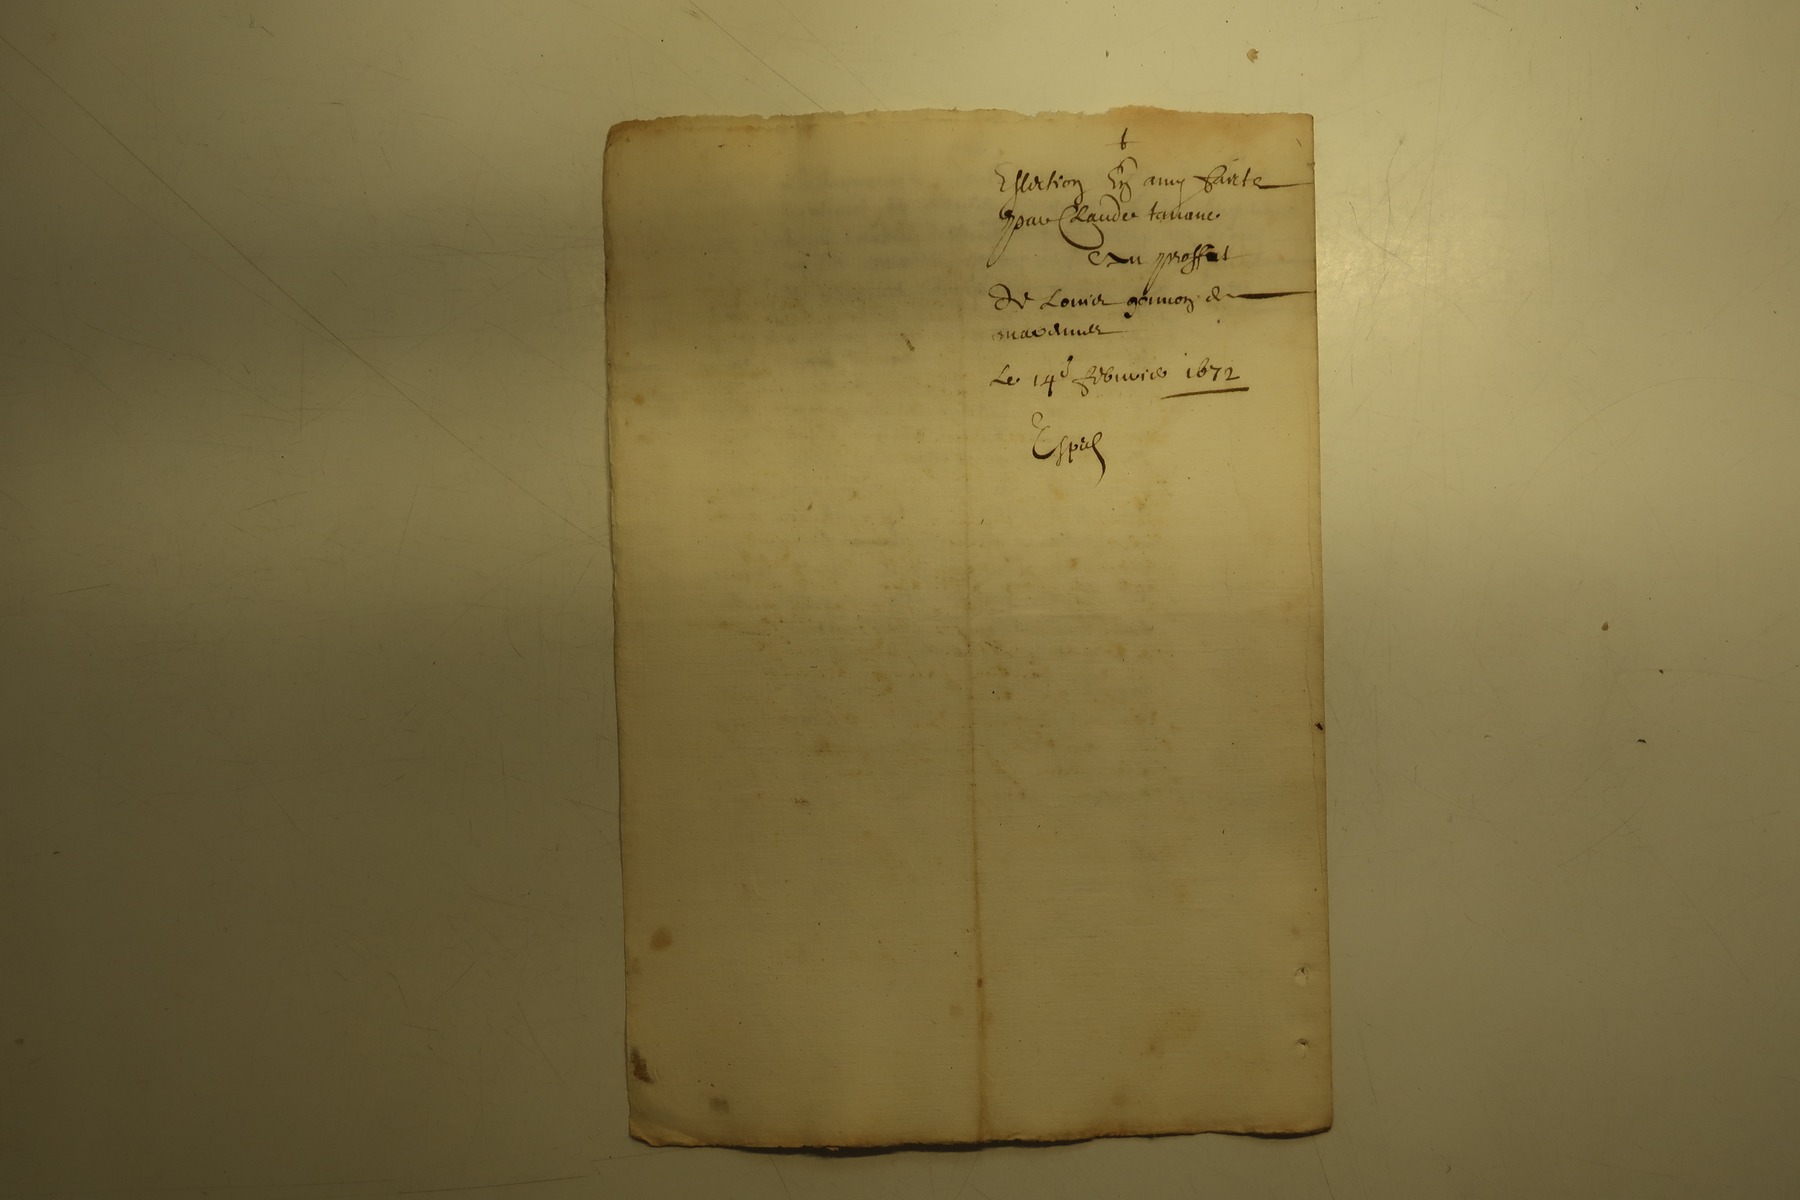 †
Eslection En amy faicte
par Claude tauane
Au proffit
de Louis gounon de
mavennes
Le 14e febvrier 1672
Espel